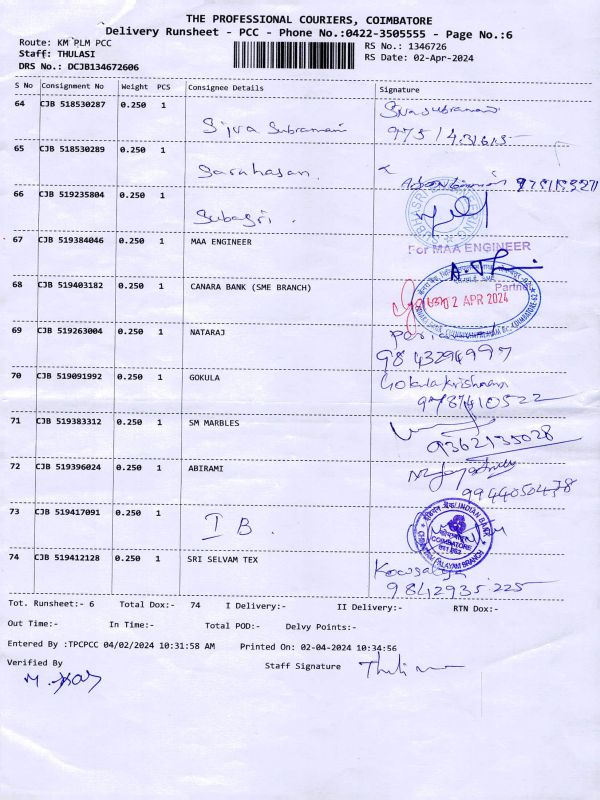 THE PROFESSIONAL COURIERS, COIMBATORE
Delivery Runsheet - PCC - Phone No.:0422-3505555 - Page No.:6
Route: KM PLM PCC
RS No.: 1346726
Staff: THULASI
RS Date: 02-Apr-2024
DRS No.: DCJB134672606
S No Consignment No Weight PCS Consignee Details Signature
64 CJB 518530287 0.250 1 Siva Subramani Sivasubramani
65 CJB 518530289 0.250 1
66 CJB 519235804 0.250 1 Subasri.
67 CJB 519384046 0.250 1 MAA ENGINEER For MAA ENGINEER
Partner
68 CJB 519403182 0.250 1 CANARA BANK (SME BRANCH) 02 APR 2024
69 CJB 519263004 0.250 1 NATARAJ
9843294997
70 CJB 519091992 0.250 1 GOKULA Gokulakrishnan
9787410522
71 CJB 519383312 0.250 1 SM MARBLES
9362135028
72 CJB 519396024 0.250 1 ABIRAMI
73 CJB 519417091 0.250 1 IB. INDIAN BANK
COIMBATORE
74 CJB 519412128 0.250 1 SRI SELVAM TEX Kowsalya
9842935225
Tot. Runsheet:- 6 Total Dox:- 74 I Delivery:- II Delivery:- RTN Dox:-
Out Time:- In Time:- Total POD:- Delvy Points:-
Entered By :TPCPCC 04/02/2024 10:31:58 AM Printed On: 02-04-2024 10:34:56
Verified By Staff Signature